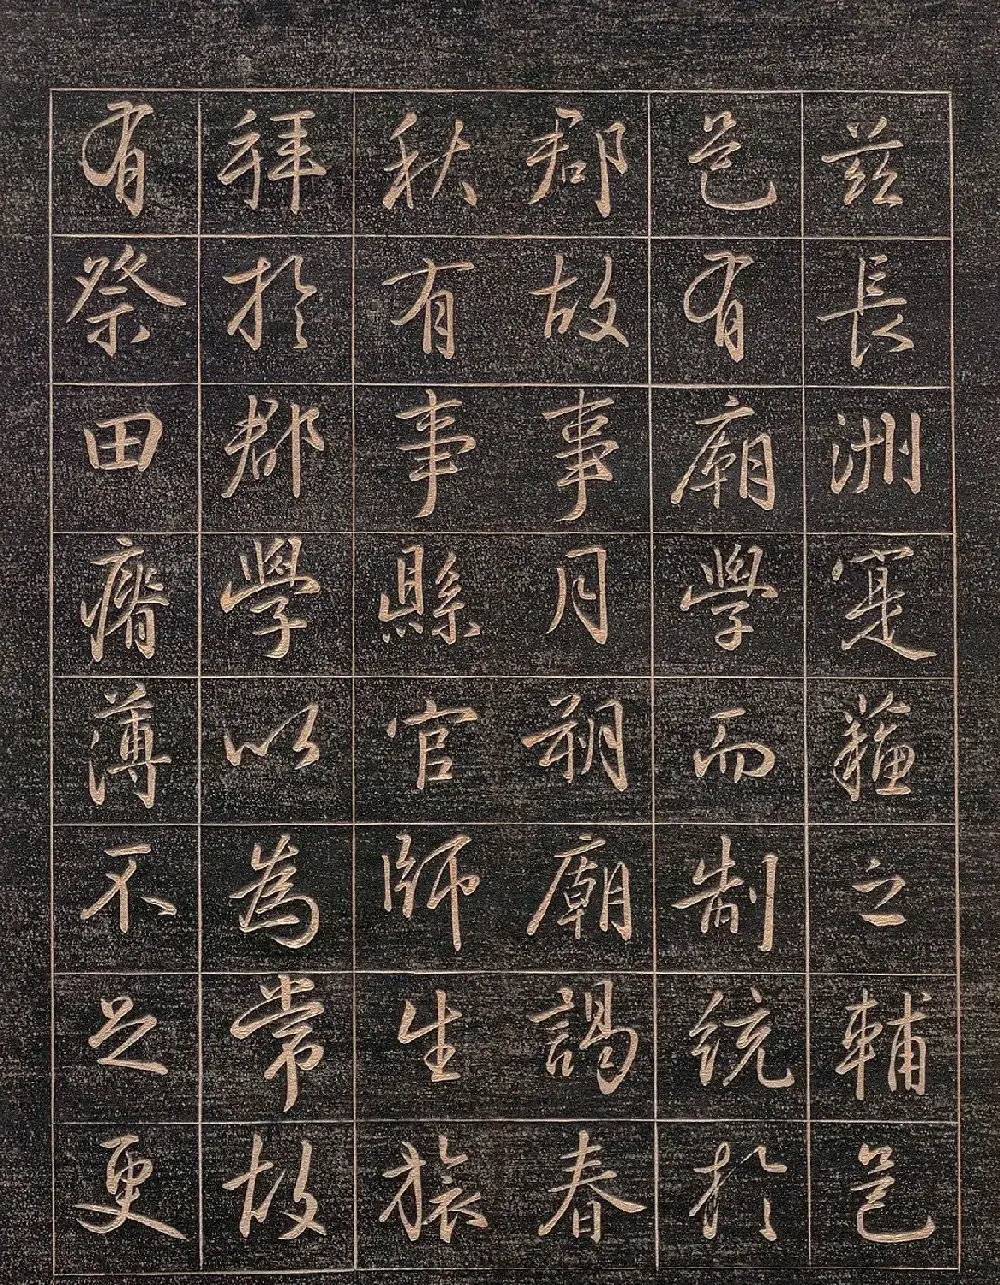 茲長洲寔蘓之輔邑
邑有廟學而制統於
郡故事月朔廟謁春
秋有事縣官師生旅
拜於郡學以為常故
有祭田瘠薄不足更